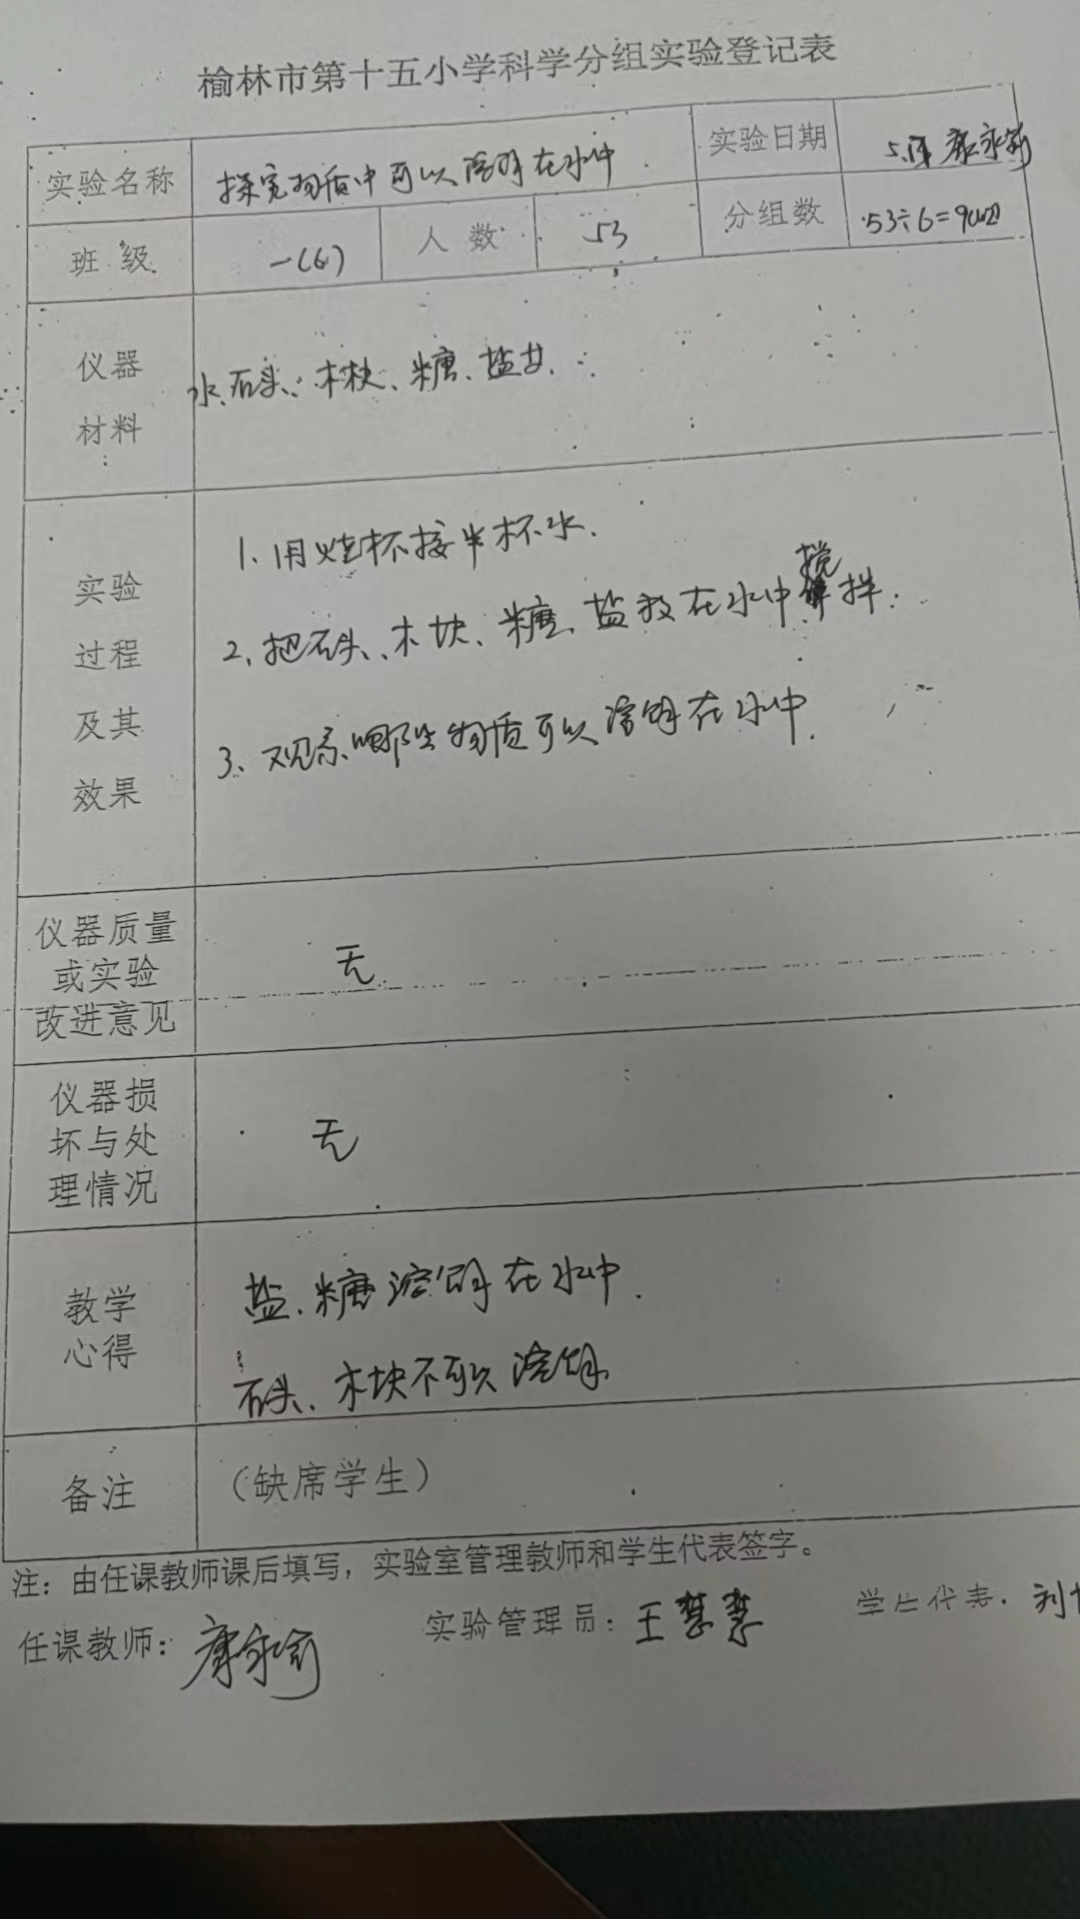 榆林市第十五小学科学分组实验登记表
实验名称 探究物质中可以溶解在水中. 实验日期
班级 一(6) 人数 53 分组数 53÷6=9(组)
仪器
材料
水、石头、木块、糖、盐
实验
过程
及其
效果
1、用烧杯接半杯水.
2、把石头、木块、糖、盐放在水中搅拌.
3、观察哪些物质可以溶解在水中.
仪器质量
或实验
改进意见
无
仪器损
坏与处
理情况
无
教学
心得
盐、糖溶解在水中.
石头、木块不可以溶解
备注 (缺席学生)
注：由任课教师课后填写，实验室管理教师和学生代表签字。
任课教师： 实验管理员：王慧 学生代表：刘